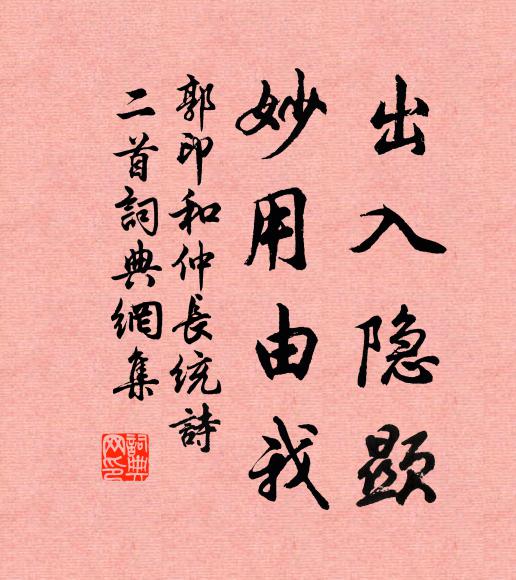 出入隐顯
妙用由我
郭印和仲長統詩
二首詞典網集
詞典
网印